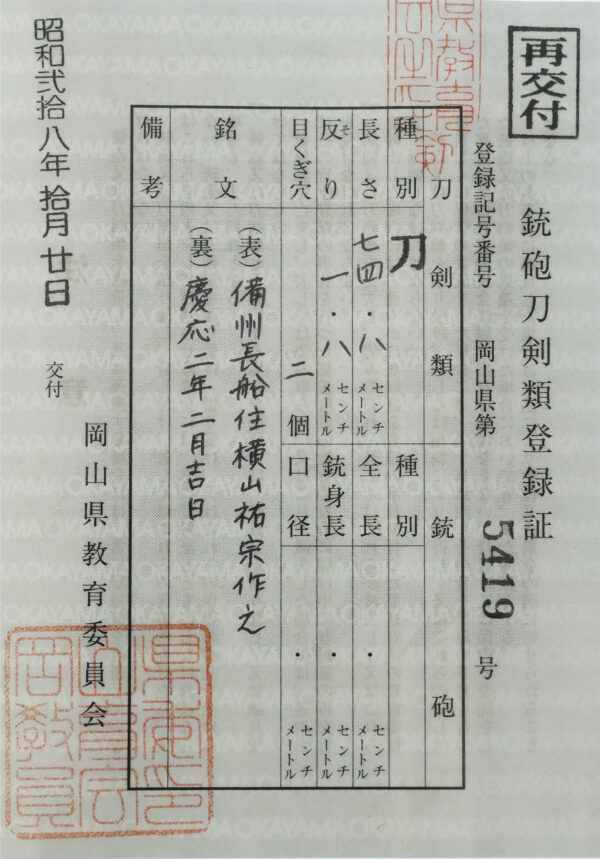 再交付
銃砲刀剣類登録証
登録記号番号 岡山県第 5419 号
刀剣類
銃砲
種別 刀
種別
長さ 七四・八 センチメートル
全長 ・ センチメートル
反り 一・八 センチメートル
そ
銃身長 ・ センチメートル
目くぎ穴 二 個
口径 ・ センチメートル
銘文
(表) 備州長船住横山祐宗作之
(裏) 慶応二年二月吉日
備考
昭和弐拾八年拾月廿日 交付
岡山県教育委員会
OKAYAMA